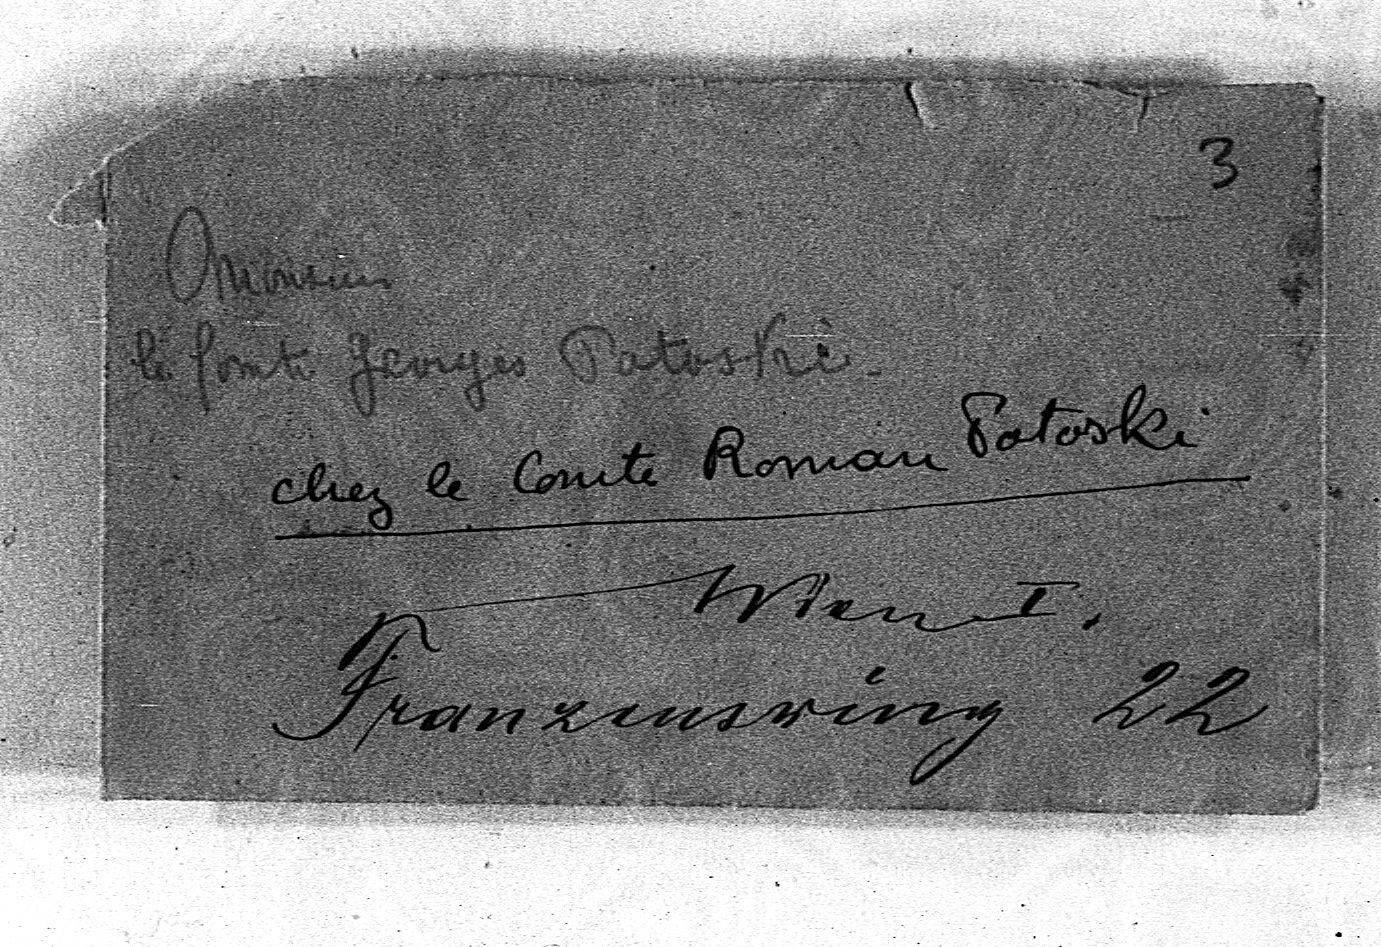 3
Monsieur
le Comte Georges Potoski.
chez le Comte Roman Potoski
Wien I.
Franzensring 22